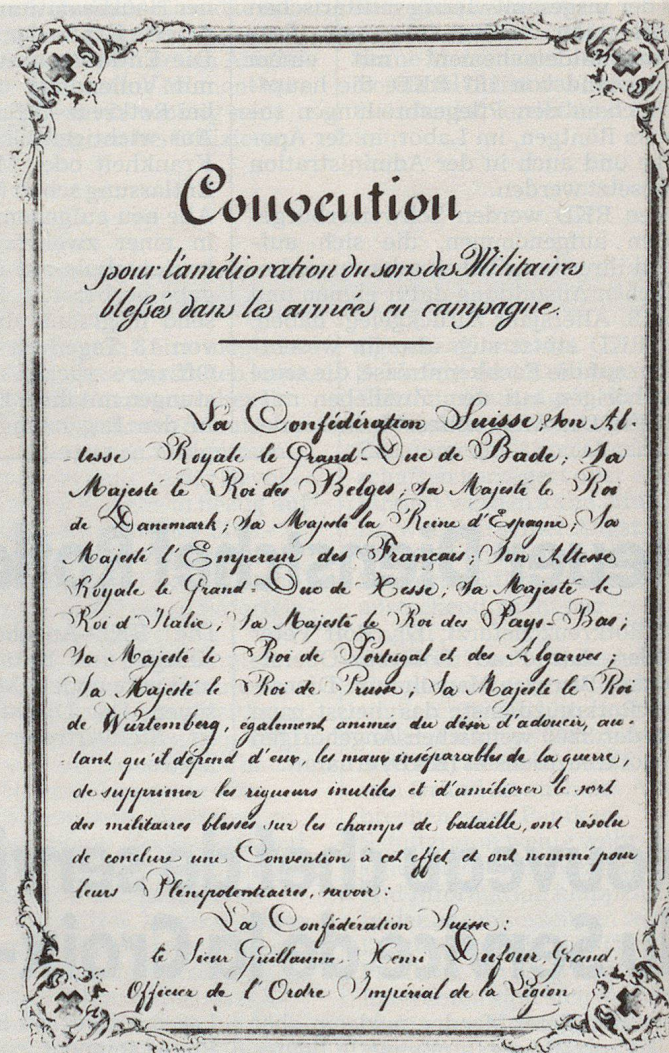 Convention
pour l'amélioration du sort des Militaires
blessés dans les armées en campagne.
La Confédération Suisse; Son Al-
tesse Royale le Grand-Duc de Bade; Sa
Majesté le Roi des Belges; Sa Majesté le Roi
de Danemark; Sa Majesté la Reine d'Espagne; Sa
Majesté l'Empereur des Français; Son Altesse
Royale le Grand-Duc de Hesse; Sa Majesté le
Roi d'Italie; Sa Majesté le Roi des Pays-Bas;
Sa Majesté le Roi de Portugal et des Algarves;
Sa Majesté le Roi de Prusse; Sa Majesté le Roi
de Würtemberg, également animés du désir d'adoucir, au-
tant qu'il dépend d'eux, les maux inséparables de la guerre,
de supprimer les rigueurs inutiles et d'améliorer le sort
des militaires blessés sur les champs de bataille, ont résolu
de conclure une Convention à cet effet et ont nommé pour
leurs Plénipotentiaires, savoir:
La Confédération Suisse:
le Sieur Guillaume Henri Dufour, Grand
Officier de l'Ordre Impérial de la Légion